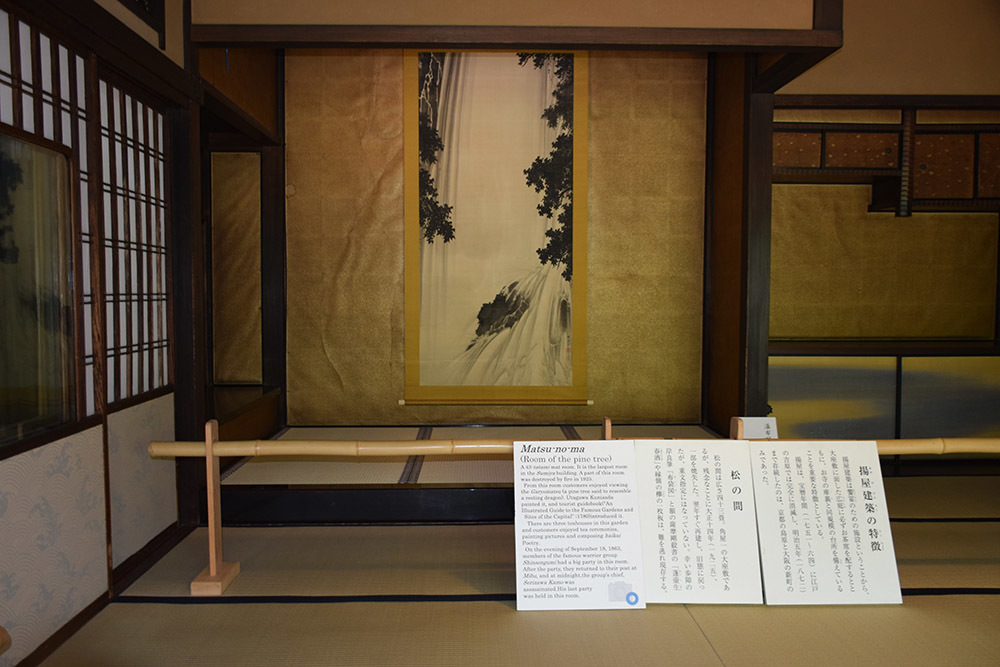 Matsu-no-ma
(Room of the pine tree)
A 43 tatami mat room. It is the largest room
in the Sumiya building. A part of this room
was destroyed by fire in 1925.
From this room customers enjoyed viewing
the Garyomatsu (a pine tree said to resemble
a resting dragon). Utagawa Kunisada
painted it, and tourist guidebook("An
Illustrated Guide to the Famous Gardens and
Sites of the Capital" (1780)introduced it.
There are three teahouses in this garden
and customers enjoyed tea ceremonies,
painting pictures and composing haikai
Poetry.
On the evening of September 18, 1863,
members of the famous warrior group
Shinsengumi had a big party in this room.
After the party, they returned to their post at
Mibu, and at midnight,the group's chief,
Serizawa Kamo was
assassinated.His last party
was held in this room.
松の間
松の間は広さ四十三畳、角屋一の大座敷であ
るが、残念なことに大正十四年(一九二五)、
一部を焼失した。翌年すぐ再建し、旧態に戻っ
たが、重文指定にはなっていない。幸い歩障の
岸良筆「布袋図」と床の薩摩剛毅書の「蓬莱生
春酒」や縁側の欅の一枚板は、難を逃れ現存する。
揚屋建築の特徴
揚屋建築は饗宴のための施設ということから、
大座敷に面した広庭に必ずお茶席を配するとと
もに、お寺の庫裏と同規模の台所を備えている
ことを重要な特徴としている。
揚屋は、宝暦年間(一七五一~六四)に江戸
の吉原では完全に消滅し、明治五年(一八七二)
まで存続したのは、京都の島原と大阪の新町の
みであった。